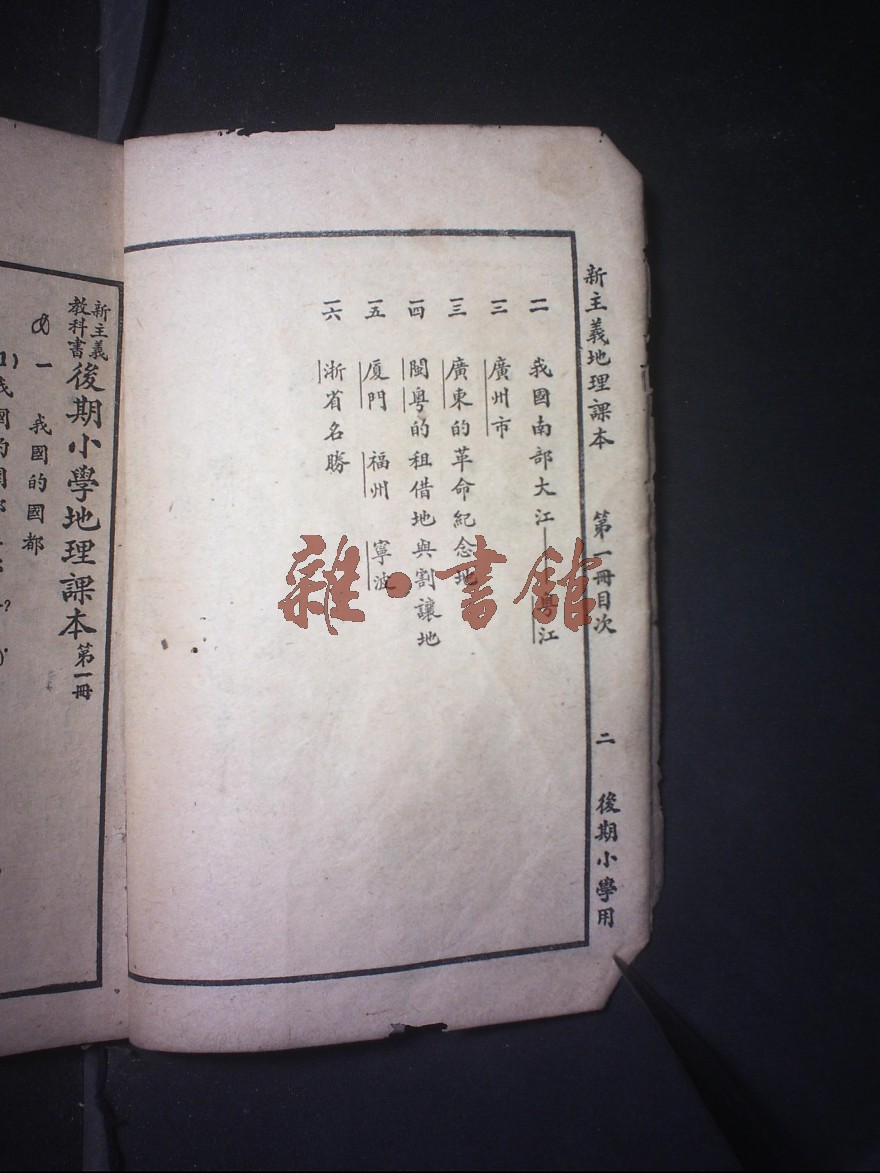 新主義地理課本 第一冊目次 二 後期小學用
一一 我國南部大江——粵江
一二 廣州市
一三 廣東的革命紀念地
一四 閩粵的租借地與割讓地
一五 厦門 福州 寧波
一六 浙省名勝
雜·書館
新主義教科書 後期小學地理課本 第一冊
一 我國的國都